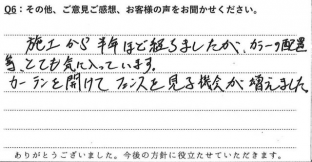 Q6：その他、ご意見ご感想、お客様の声をお聞かせください。
施工から半年ほど経ちましたが、カラーの配置
等、とても気に入っています。
カーテンを開けてフェンスを見る機会が増えました
ありがとうございました。今後の方針に役立たせていただきます。